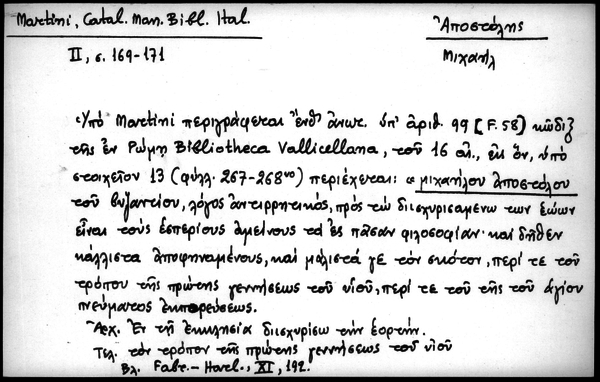 Martini, Catal. Man. Bibl. Ital.
Ἀποστόλης
II, σ. 169-171
Μιχαήλ
Ὑπό Martini περιγράφεται ἔνθ' ἀνωτ. ὑπ' ἀριθ. 99 [F. 58] κῶδιξ
τῆς ἐν Ρώμῃ Bibliotheca Vallicellana, τοῦ 16 αἰ., εἰς ὅν, ὑπό
στοιχεῖον 13 (φύλλ. 267-268νο) περιέχεται: « μιχαήλου ἀποστόλου
τοῦ βυζαντίου, λόγος ἀντιρρητικός, πρός τῶ διισχυρισαμένω των ἑώων
εἶναι τούς ἑσπερίους ἀμείνους τα ἐς πᾶσαν φιλοσοφίαν· καί δῆθεν
κάλλιστα ἀποφηναμένους, καί μάλιστά γε τόν σκότον, περί τε τοῦ
τρόπου τῆς πρώτης γεννήσεως τοῦ υἱοῦ, περί τε τοῦ τῆς τοῦ ἁγίου
πνεύματος ἐκπορεύσεως.
Ἀρχ. Ἐν τῇ ἐκκλησία διισχυρίσω τήν ἑορτήν.
Τελ. τόν τρόπον τῆς πρώτης γεννήσεως τοῦ υἱοῦ
Βλ. Fabr.- Harel., XI, 192.